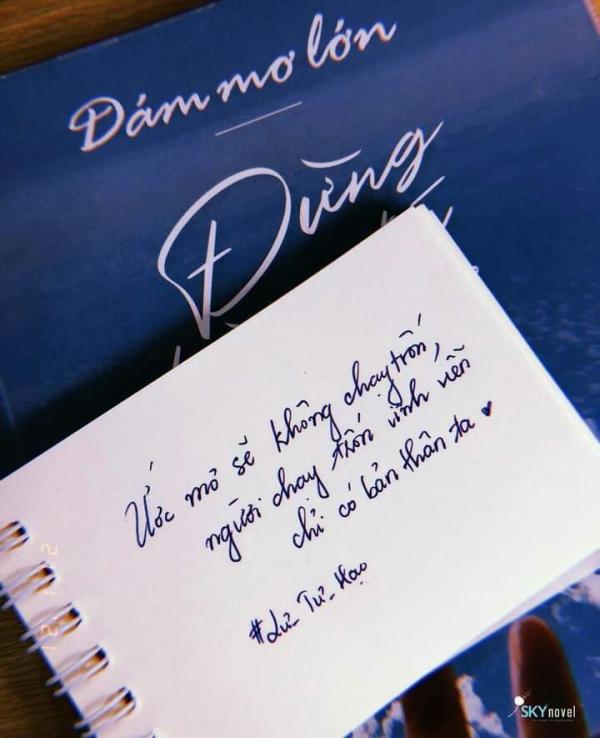 Dám mơ lớn
Đừng
Ước mỏ sẽ không chạy trốn,
người chạy trốn vĩnh viễn
chỉ có bản thân ta
#Lử_Tư_Hạo
12 1 '21
SKY novel